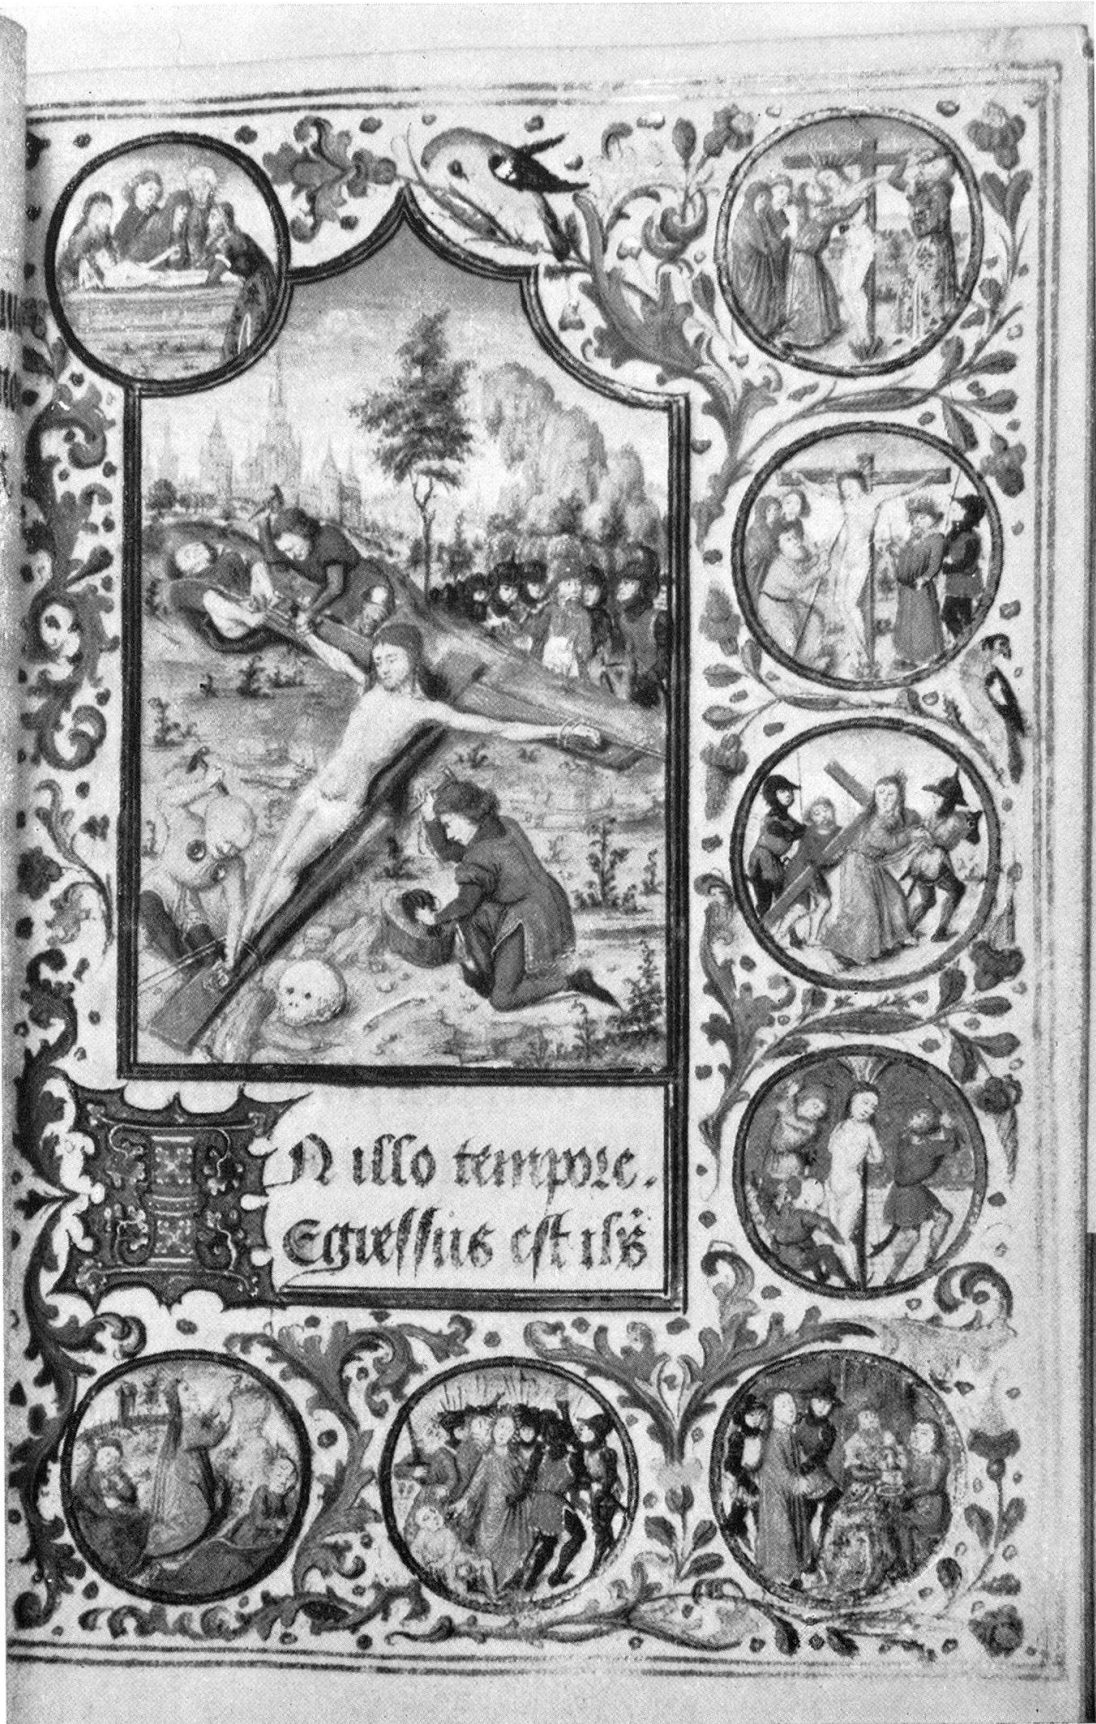 IN illo tempore.
Egressus est ihs̄